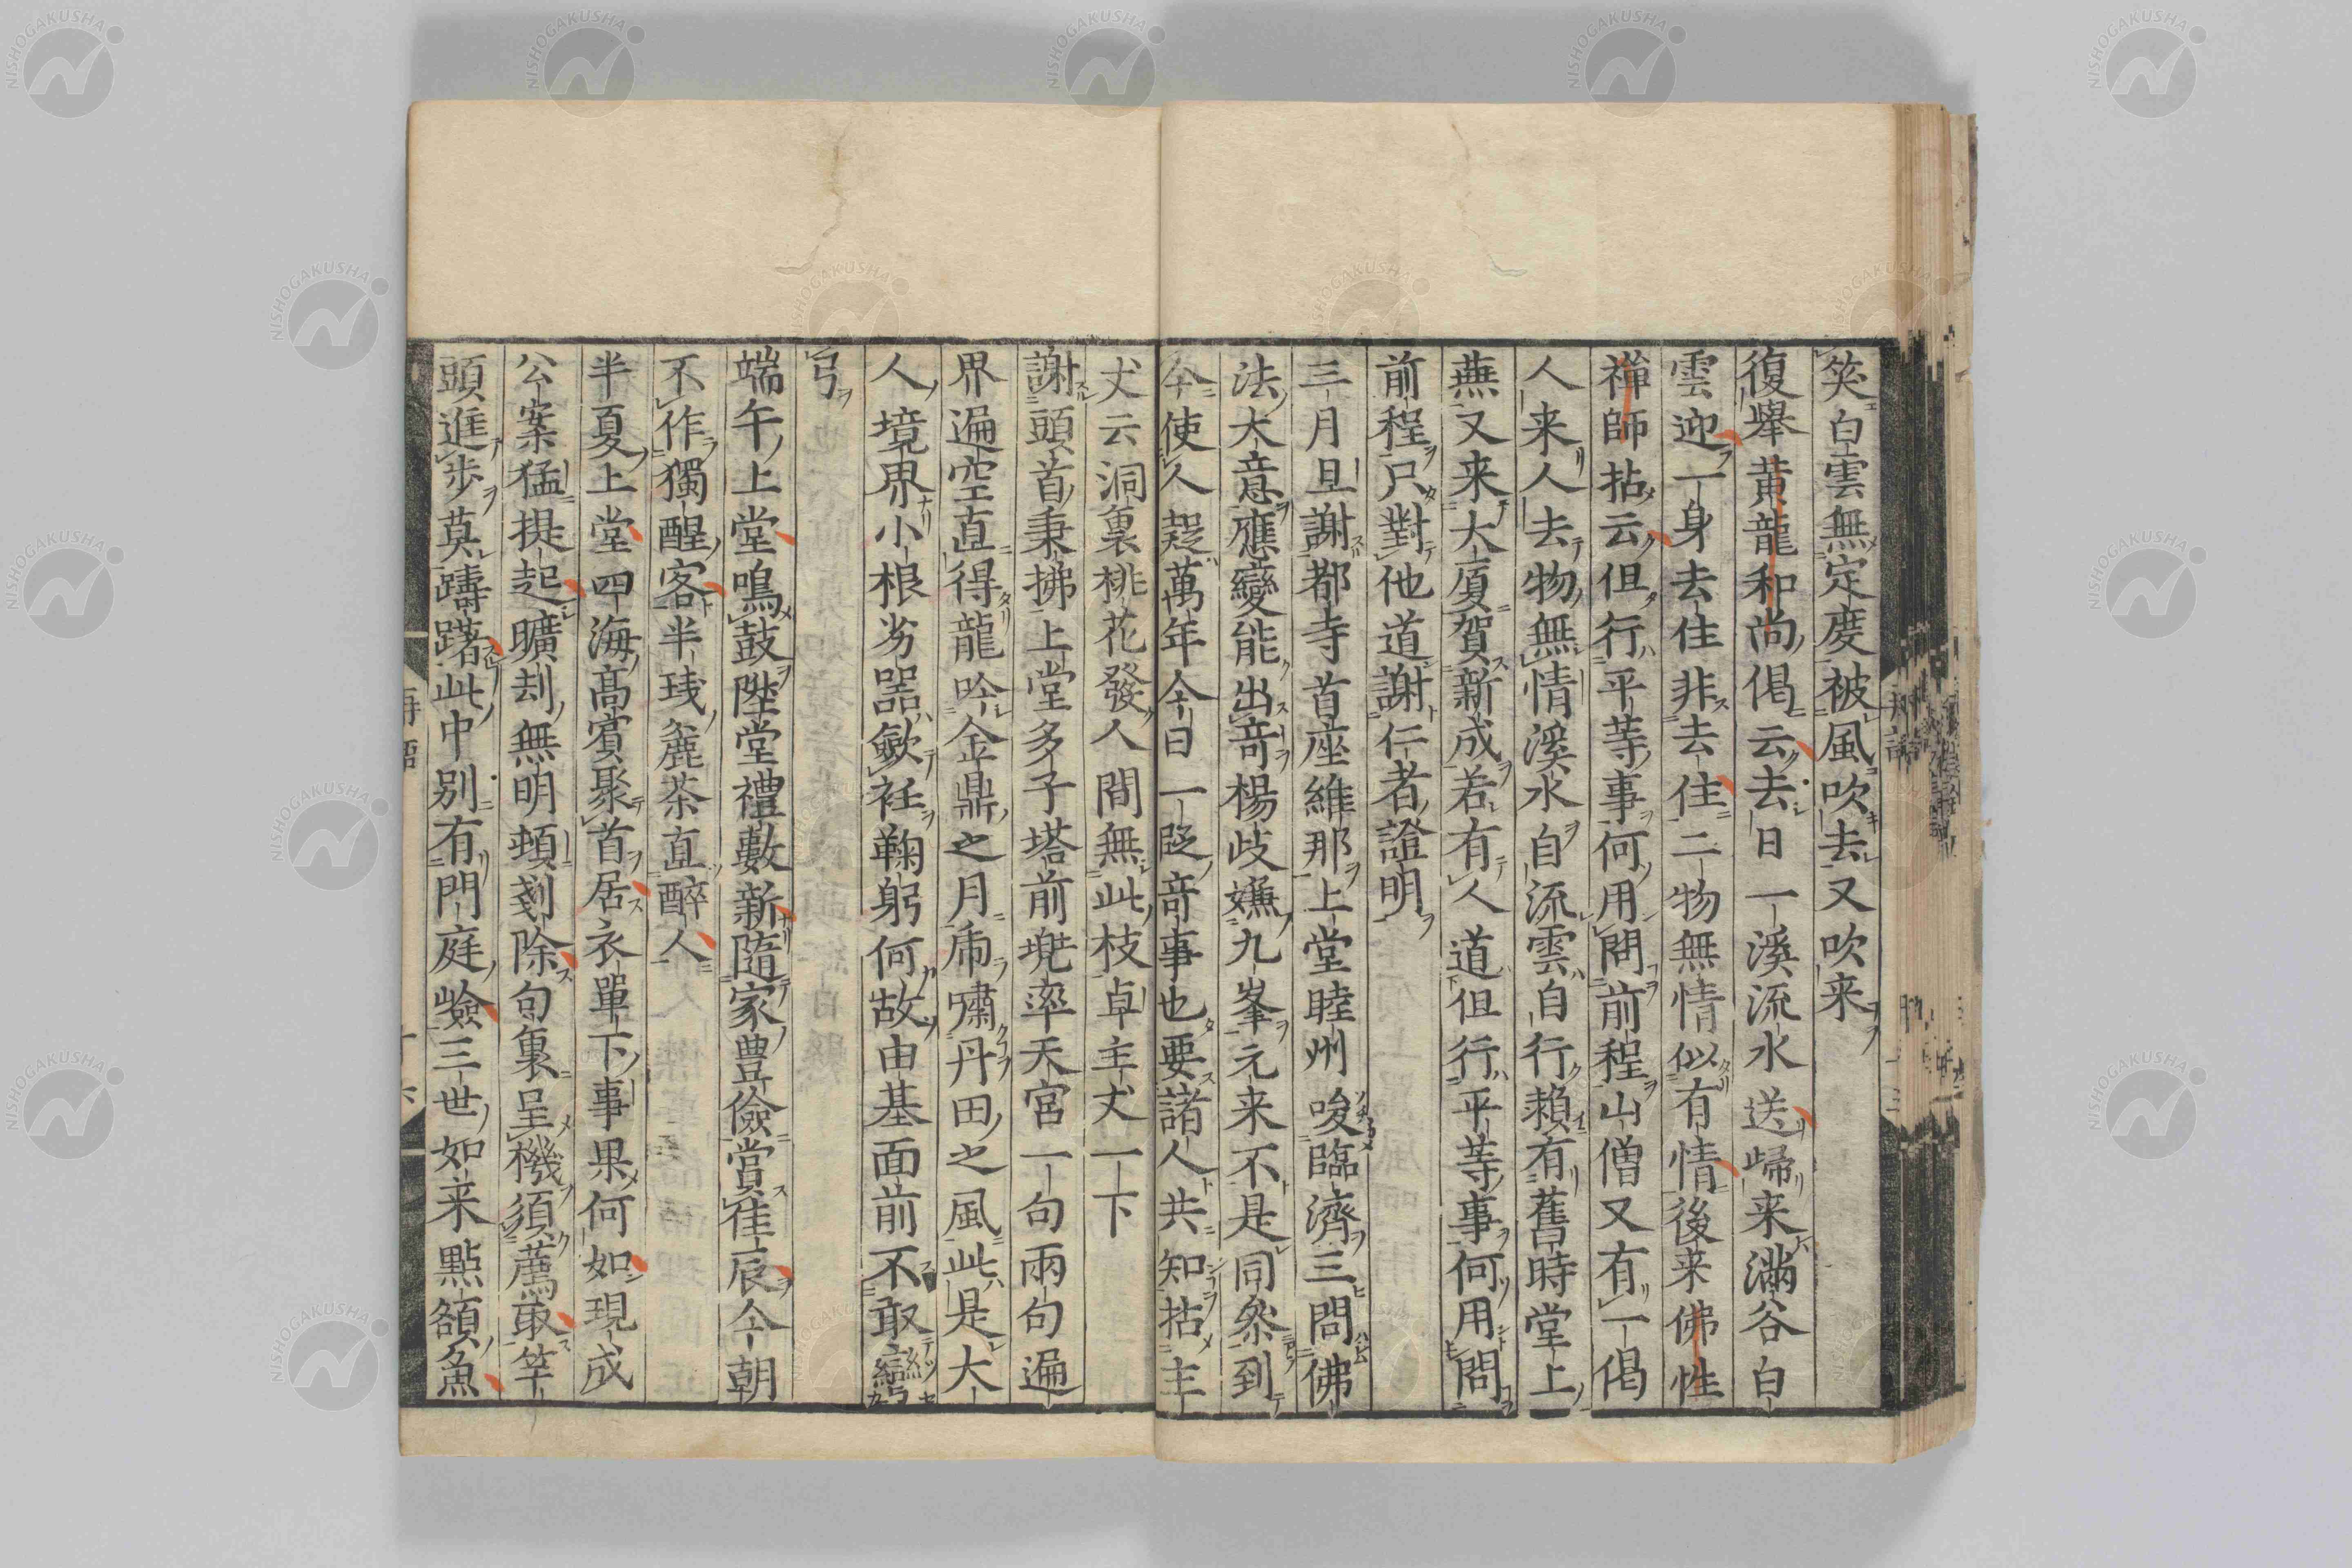 笑白雲無定度被風吹去又吹来
復舉黄龍和尚偈云去日一溪流水送歸来滿谷白
雲迎一身去住非去住二物無情似有情後来佛性
禅師拈云但行平等事何用問前程山僧又有一偈
人来人去物無情溪水自流雲自行頼有舊時堂上
燕又来大厦賀新成若有人道但行平等事何用問
前程只對他道謝仁者證明
三月旦謝都寺首座維那上堂睦州唆臨濟三問佛
法大意應變能出竒楊歧嬚九峯元来不是同叅到
今使人疑萬年今日一段竒事也要諸人共知拈主
丈云洞裏桃花發人間無此枝卓主丈一下
謝頭首秉拂上堂多子塔前兠率天宮一句兩句遍
界遍空直得龍吟金鼎之月虎嘯丹田之風此是大
人境界小根劣器歛衽鞠躬何故由基面前不敢彎
弓
端午上堂鳴鼓陞堂禮數新隨家豊儉賞佳辰今朝
不作獨醒客半琖麁茶直醉人
半夏上堂四海髙賓聚首居衣單下事果何如現成
公案猛提起曠刦無明頓剗除句裏呈機須薦取竿
頭進步莫躊躇此中別有門庭嶮三世如来點額魚